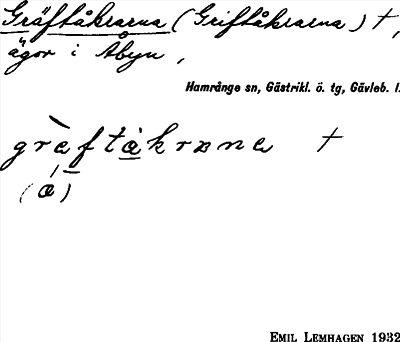 Gräftåkrarna (Griftåkrarna) †,
ägor i Åbyn,
Hamrånge sn, Gästrikl. ö. tg, Gävleb. l.
gràftàkrɒna †
(a)
EMIL LEMHAGEN 1932